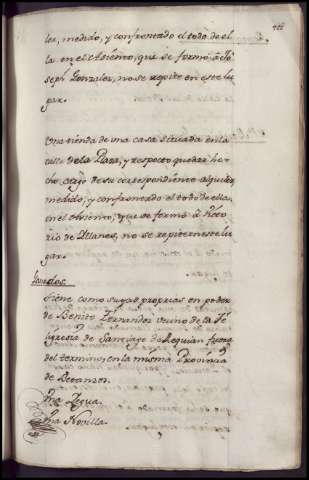 ler, medido, y confrontado el todo de el
la en el Asiento, que se formó á Jo
seph Gonzalez, no se repite en este lu
gar.
Una tienda de una casa situada en la
calle de la Plaza, y respecto quedar he
cho, cargo de su correspondiente alquiler,
medido, y confrontado el todo de ella,
en el Asiento, que se formó á
rio de Llanes, no se repite en este lu
gar.
Ganados
Tiene como suyas proprias en poder
de Benito Fernandez vecino de la Fe
ligresia de Santiago de Requian fuera
del termino, en la misma Provincia
de Betanzos.
Una Yegua.
Una Novilla.